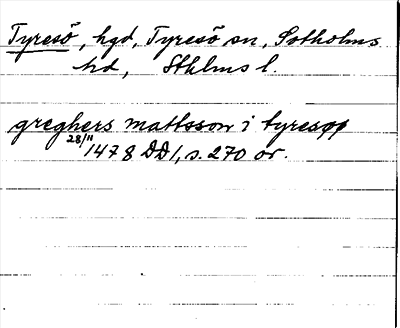 Tyresö, hgd, Tyresö sn, Sotholms
hd, Sthlms l.
greghers mattsson i tyresøø
28/11 1478 DD1, s. 270 or.